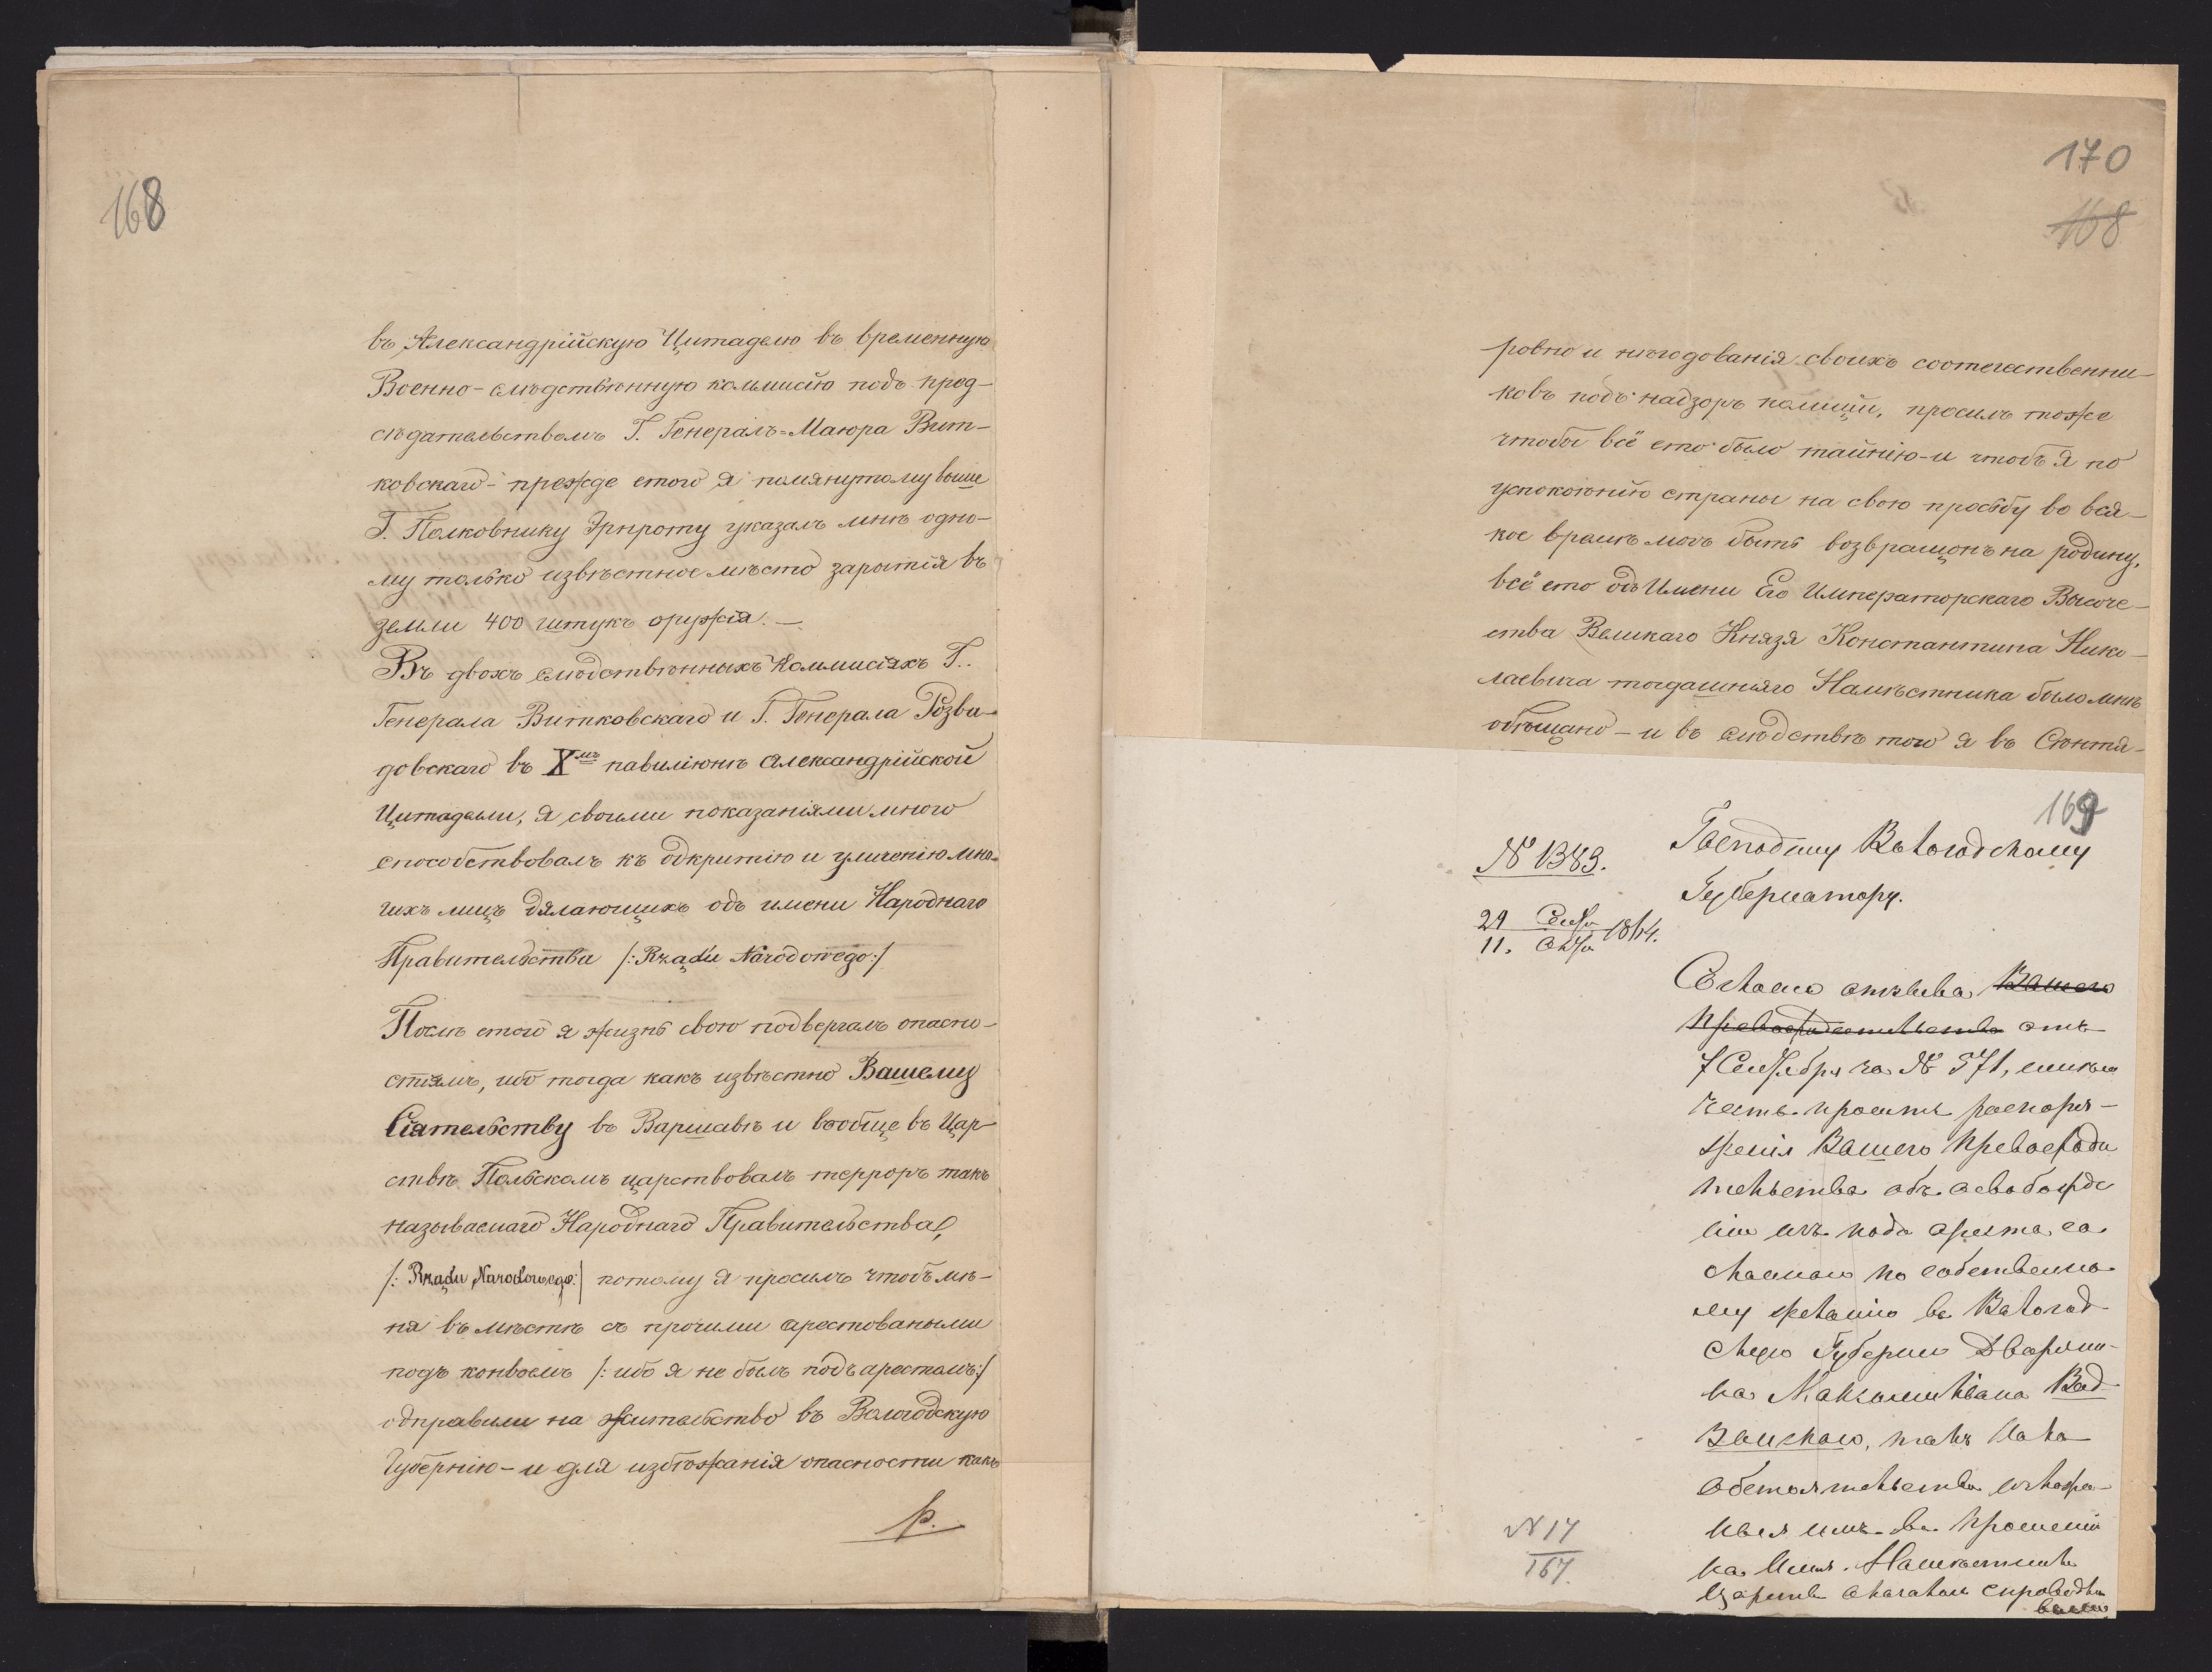 168
въ Александрійскую Цитаделю въ временную
Военно-слѣдствѣнную коммисію подъ пред-
сѣдательствомъ Г. Генералъ=Маюра Вит-
ковскаго - прежде етого я помянутому выше
Г. Полковнику Эрнроту указалъ мнѣ одно-
му только извѣстное мѣсто зарытія въ
земли 400 штукъ оружія. —
Въ двохъ слѣдствѣнныхъ Коммисіяхъ Г.
Генерала Витковскаго и Г. Генерала Розва-
довскаго въ Xмъ павиліонѣ Александрійской
Цитадели, я своими показаніями много
способствовалъ къ одкритію и уличенію мно-
гихъ лицъ дялающихъ одъ имени Народнаго
Правительства /: Rządu Narodowego :/
Послѣ етого я жизнь свою подвергалъ опасно-
стямъ, ибо тогда какъ извѣстно Вашему
Сіятельству въ Варшавѣ и вообще въ Цар-
ствѣ Польскомъ царствовалъ терроръ такъ
называемаго Народнаго Правительства,
/: Rządu Narodowego :/ потому я просилъ чтобъ мѣ-
ня въ мѣстѣ съ прочими арестоваными
подъ конвоемъ /: ибо я не былъ подъ арестомъ :/
одправили на жительство въ Вологодскую
Губернію - и для избѣжанія опасности какъ
170
168
ровно и нѣгодованія своихъ соотечественни-
ковъ подъ надзоръ полиціи, просилъ тоже
чтобы всё ето было тайнію - и чтобъ я по
успокоѣнію страны на свою просьбу во вся-
кое время могъ быть возвращонъ на родину,
всё ето одъ Имени Его Императорскаго Высоче-
ства Великаго Князя Константина Нико-
лаевича тогдашняго Намѣстника было мнѣ
обѣщано - и въ слѣдствѣ того я въ Сѣнтя-
169
№ 1383.
Господину Вологодскому
Губернатору.
29 Сент
11. Окт 1864.
Согласно отзыва Вашего
Превосходительства отъ
7 Сентября за № 571, имѣю
честь просить распоря-
женія Вашего Превосходи
тельства объ освобожде
ніи изъ подъ ареста со
сланаго по собственно
му желанію въ Вологод
скую Губернію Дворяни-
на Максимиліана
такъ какъ
обстоятельства
имъ въ прошеніи
на Имя Намѣстника
Царства оказались справедли
выми
№ 17
167.